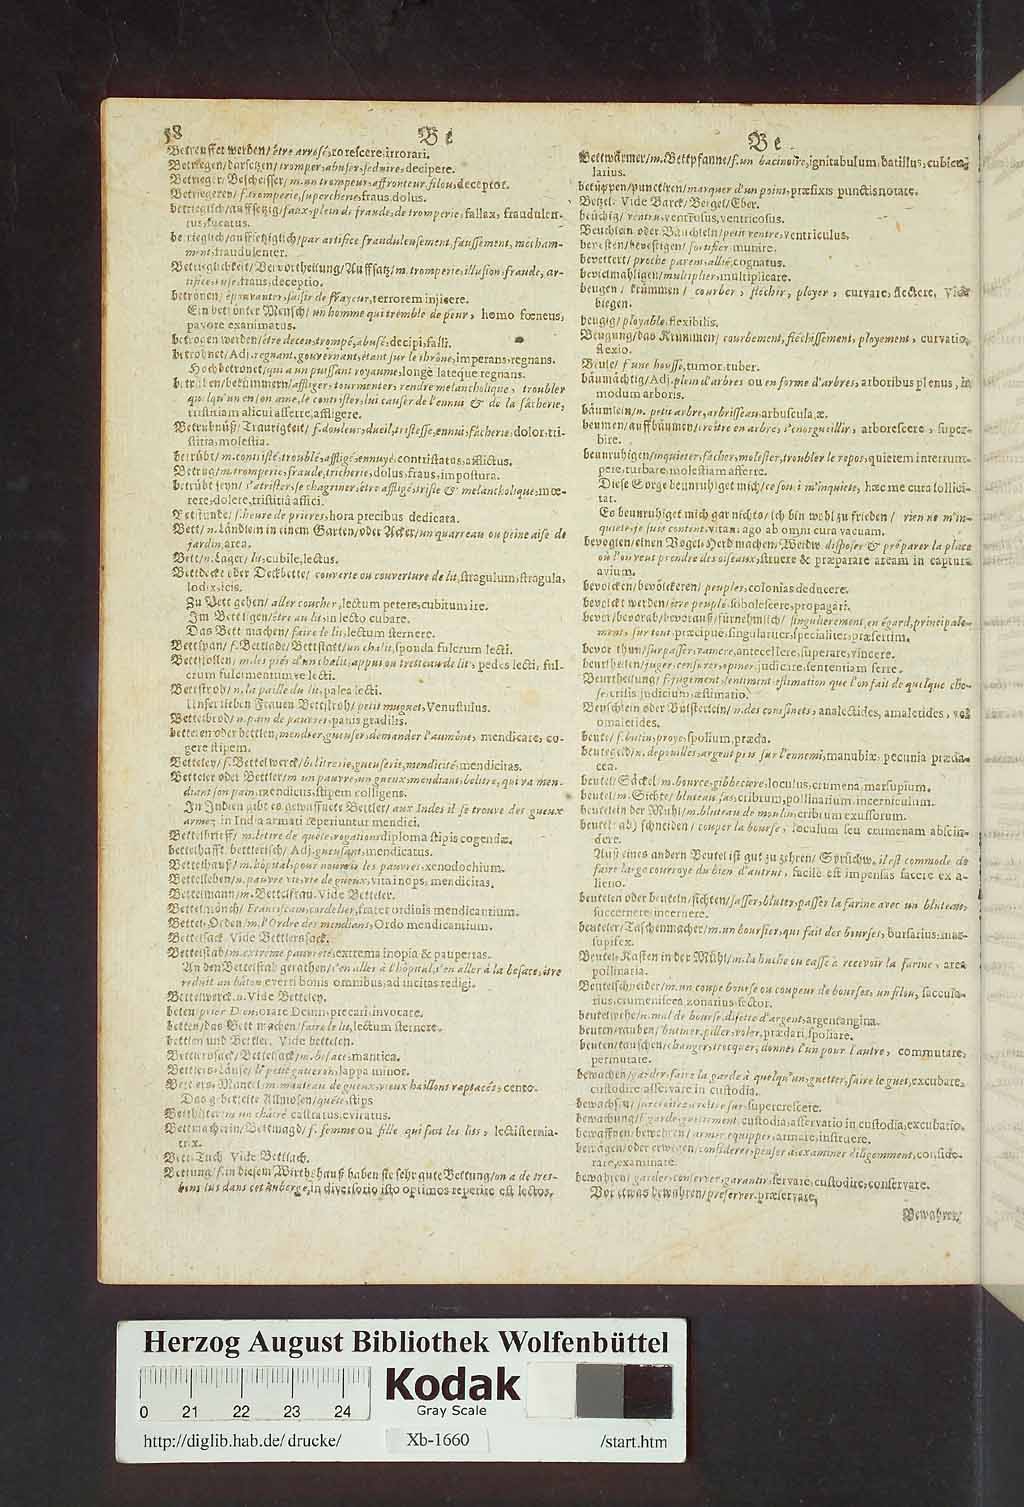 58
Be
Betreuffet werden/ être arrosé, rorescere, irrorari.
Betriegen/ tromper, abuser, seduire, decipere.
Betrieger/ Bescheisser/ m. un trompeur, affronteur, filou, deceptor.
Betriegerey/ f. tromperie, supercherie, fraus, dolus.
betrieglich/ auffsetzig/ faux, plein de fraude, de tromperie, fallax, fraudulen-
tus, fucatus.
betrieglich/ auffsetziglich/ par artifice, fraudulensement, faussement, mecham-
ment, fraudulenter.
Betrieglichkeit/ Bervortheilung/ Auffsatz/ m. tromperie, illusion, fraude, ar-
tifice, ruse, fraus, deceptio.
betronen/ épouvanter, saisir de frayeur, terrorem injicere.
Ein betronter Mensch/ un homme qui tremble de peur, homo fœneus,
pavore exanimatus.
betrogen werden/ être decen, trompé, abusé, decipi, falli.
betrohnet/ Adj. regnant, gouvernant, étant sur le thrône, imperans, regnans.
Hochbetronet/ qui a un puissant royaume, longè lateque regnans.
betrüben/ bekümmern/ affliger, tourmenter, rendre melancholique, troubler
quelqu'un en son ame, le contrister, lui causer de l'ennui & de la fâcherie,
tristitiam alicui afferre, affligere.
Betrübnüß/ Traurigkeit/ f. douleur, dueil, tristesse, ennui, fâcherie, dolor, tri-
stitia, molestia.
betrübt/ m. contristé, troublé, affligé, ennuyé, contristatus, afflictus.
Betrug/ m. tromperie, fraude, tricherie, dolus, fraus, impostura.
betrübt seyn/ s'atrister, se chagriner, être affligé, triste & melancholique, mœ-
rere, dolere, tristitiâ affici.
Betstunde/ f. heure de prieres, hora precibus dedicata.
Bett/ n. Ländlein in einem Garten/ oder Acker/ un quarreau ou peine aise de
jardin, area.
Bett/ n. Lager/ lit, cubile, lectus.
Bettdecke oder Deckbette/ couverte ou couverture de lit, stragulum, stragula,
lodix, icis.
Zu Bett gehen/ aller coucher, lectum petere, cubitum ire.
Im Bett ligen/ être au lit, in lecto cubare.
Das Bett machen/ faire le lit, lectum sternere.
Bettspan/ f. Bettlade/ Bettstatt/ un chalit, sponda fulcrum lecti.
Bettstollen/ m. les piés d'un chalit, appui ou tresteau de lit, pedes lecti, ful-
crum fulcimentumve lecti.
Bettstroh/ n. la paille du lit, palea lecti.
Unser lieben Frauen Bettstroh/ petit muguet, Venustulus.
Bettelbrod/ n. pain de pauvres, panis gradilis.
bettelen oder bettlen, mendier, gueuser, demander l'aumône, mendicare, co-
gere stipem.
Betteley/ f. Bettelwerck/ belitrerie, gueuserie, mendicité, mendicitas.
Betteler oder Bettler/ m. un pauvre, un gueux, mendiant, belitre, qui va men-
diant son pain, mendicus, stipem colligens.
In Indien gibt es gewaffnete Bettler/ aux Indes il se trouve des gueux
armez, in India armati reperiuntur mendici.
Bettelbrieff/ m. lettre de quête, rogation, diploma stipis cogendæ.
bettelhafft, bettlerisch/ Adj. gueusant, mendicatus.
Bettelhauß/ m. hôpital, pour nourrir les pauvres, xenodochium.
Bettelleben/ n. pauvre vie, vie de gueux, vita inops, mendicitas.
Bettelmann/ m. Bettelfrau. Vide Betteler.
Bettelmönch/ Franciscain, cordelier, frater ordinis mendicantium.
Bettel-Orden/ m. l'Ordre des mendians, Ordo mendicantium.
Bettelsack Vide Bettlerssack.
Bettelstab/ m. extreme pauvreté, extrema inopia & paupertas.
An den Bettelstab gerathen/ s'en aller à l'hôpital, s'en aller à la besace, être
reduit au bâton, everti bonis omnibus, ad incitas redigi.
Bettelwerck. n. Vide Betteley.
beten/ prier Dieu, orare Deum, precari, invocare.
betten/ das Bett machen/ faire le lit, lectum sternere.
bettlen und Bettler. Vide bettelen.
Bettlerssack/ Bettelsack/ m. besace, mantica.
Bettlers-Läuse/ le petit glateron, lappa minor.
Bettlers-Mantel/ m. manteau de gueux, vieux haillons raptacés, cento.
Das gebettelte Allmosen/ quête, stips
Bettbitter/ m. un châtré, castratus, eviratus.
Bettmacherin/ Bettmagd/ f. femme ou fille qui fait les lits, lectisternia-
trix.
Bett-Tuch Vide Bettlach.
Bettung/ f. in diesem Wirthshauß haben sie sehr gute Bettung/ on a de tres-
bons lits dans cet Auberge, in diversorio isto optimos reperire est lectos.
Be
Bettwärmer/ m. Bettpfanne/ f. un bacinoire, ignitabulum, batillus, cubicu-
larius.
betüppen/ punctiren/ marquer d'un point, præfixis punctis notare.
Betzel. Vide Barck/ Beigel/ Eber.
beüchig/ ventru, ventrosus, ventricosus.
Beuchlein oder Bäuchlein/ petit ventre, ventriculus.
bevesten/ bevestigen/ fortifier, munire.
bevettert/ proche parent, allié, cognatus.
bevielmahligen/ multiplier, multiplicare.
beugen/ krümmen/ courber, flechir, ployer, curvare, flectere, Vide
biegen.
beugig/ ployable, flexibilis.
Beugung/ das Krümmen/ courbement, fléchissement, ployement, curvatio,
flexio.
Beule/ f. une bousse, tumor, tuber.
bäumächtig/ Adj. plein d'arbres ou en forme d'arbres, arboribus plenus, in
modum arboris.
bäumlein/ n. petit arbre, arbrisseau, arbuscula, æ.
beumen/ auffbäumen/ croître en arbre, s'enorgueillir, arborescere, super-
bire.
beunruhigen/ inquieter, fâcher, molester, troubler le repos, quietem interrum-
pere, turbare, molestiam afferre.
Diese Sorge beunruhiget mich/ ce souci m'inquiete, hæc me cura sollici-
tat.
Es beunruhiget mich gar nichts/ ich bin wohl zu frieden/ rien ne m'in-
quiete, je suis content, vitam ago ab omni cura vacuam.
bevoglen/ einen Vogel-Herd machen/ Weidw. disposer & préparer la place
où l'on veut prendre des oiseaux, struere & præparare aream in captura
avium.
bevolcken/ bevölckeren/ peupler, colonias deducere.
bevolckt werden/ être peuplé, sobolescere, propagari.
bevor/ bevorab/ bevorauß/ fürnehmlich/ singulierement, en égard, principale-
ment, sur tout, præcipuè, singulariter, specialiter, præsertim.
bevor thun/ surpasser, vaincre, antecellere, superare, vincere.
beurtheilen/ juger, censurer, opiner, judicare, sententiam ferre.
Beurtheilung/ f. jugement, sentiment, estimation que l'on fait de quelque cho-
se, crisis, judicium, æstimatio.
Beuschlein oder Bülsterlein/ n. des coussinets, analectides, amalectides, vel
omalectides.
beute/ f. butin, proye, spolium, præda.
beutegeld/ n. depouilles, argent pris sur l'ennemi, manubiæ, pecunia præda-
cea.
beutel/ Säckel/ m. bource, gibbeciere, loculus, crumena, marsupium.
beutel/ m. Sichte/ bluteau, sas, cribrum, pollinarium, incerniculum.
beutel in der Mühl/ m. bluteau de moulin, cribrum excussorum.
beutel (ab) schneiden/ couper la bourse, loculum seu crumenam abscin-
dere.
Auß eines andern Beutel ist gut zu zehren/ Sprüchw. il est commode de
faire large courroye du bien d'autrui, facile est impensas facere ex a-
lieno.
beutelen oder beuteln/ sichten/ sasser, bluter, passer la farine avec un bluteau,
succernere, incernere.
beuteler/ Taschenmacher/ m. un boursier, qui fait des bourses, bursarius, mar-
supifex.
Beutel-Kasten in der Mühl/ m. la huche ou casse à recevoir la farine, area
pollinaria.
Beutelschneider/ m. un coupe bourse ou coupeur de bourses, un filou, saccula-
rius, crumeniseca, zonarius sector.
beutelwehe/ n. mal de bourse, disette d'argent, argentangina.
beuten/ rauben/ butiner, piller, voler, prædari, spoliare.
beuten/ tauschen/ changer, trocquer, donner l'un pour l'autre, commutare,
permutare.
bewachen/ garder, faire la garde à quelqu'un, guetter, faire le guet, excubare,
custodire, asservare in custodia.
bewachsen/ surcroître, croître sur, supercrescere.
bewachung/ f. garde, guettement, custodia, asservatio in custodia, excubatio.
bewaffnen/ bewehren/ armer, equipper, armare, instruere.
bewägen/ oder erwegen/ considerer, penser à, examiner diligemment, conside-
rare, examinare.
bewahren/ garder, conserver, garantir, servare, custodire, conservare.
Vor etwas bewahren/ preserver, præservare,
Bewahrer/
Herzog August Bibliothek Wolfenbüttel
Kodak
Gray Scale
0 21 22 23 24
http://diglib.hab.de/drucke/ Xb-1660 /start.htm